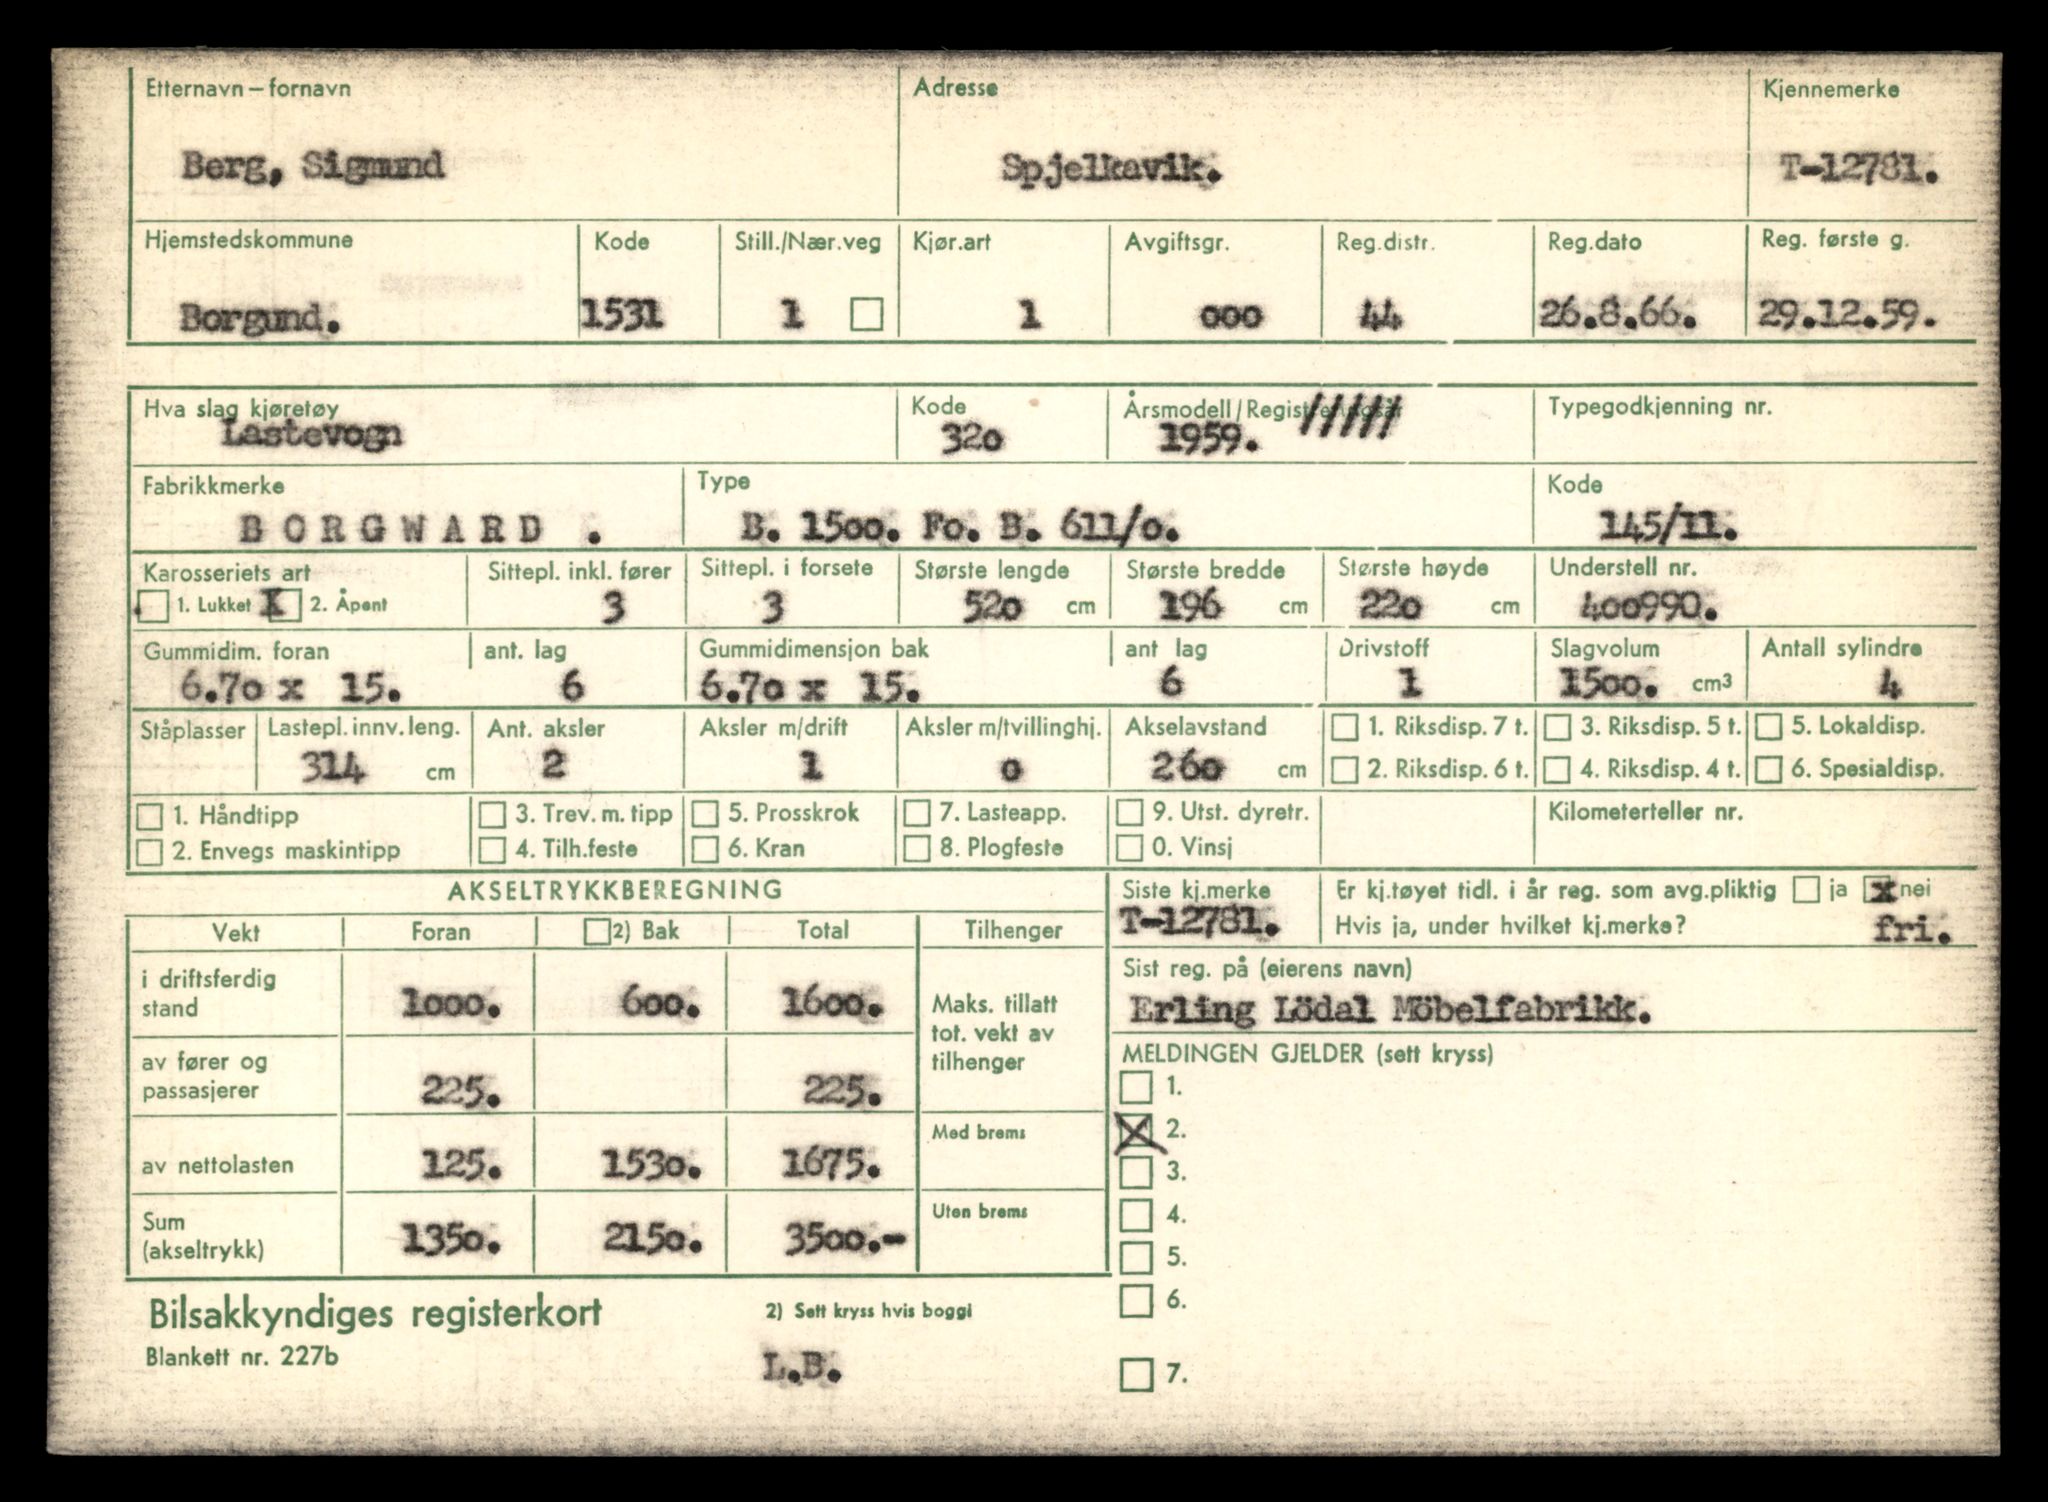 Etternavn – fornavn Adresse Kjennemerke
Berg, Sigmund Spjelkavik. T-12781.
Hjemstedskommune Kode Still./Nær.veg Kjør.art Avgiftsgr. Reg.distr. Reg.dato Reg. første g.
Borgund. 1531 1 1 ooo 44 26.8.66. 29.12.59.
Hva slag kjøretøy Kode Årsmodell/Registreringsår Typegodkjenning nr.
Lastevogn 32o 1959. /////
Fabrikkmerke Type Kode
BORGWARD . B. 15oo. Fo. B. 611/o. 145/11.
Karosseriets art Sittepl. inkl. fører Sittepl. i forsete Største lengde Største bredde Største høyde Understell nr.
1. Lukket X 2. Åpent 3 3 52o cm 196 cm 22o cm 4oo99o.
Gummidim. foran ant. lag Gummidimensjon bak ant lag Drivstoff Slagvolum Antall sylindre
6.7o x 15. 6 6.7o x 15. 6 1 15oo. cm3 4
Ståplasser Lastepl. innv. leng. Ant. aksler Aksler m/drift Aksler m/tvillinghj. Akselavstand 1. Riksdisp. 7 t. 3. Riksdisp. 5 t. 5. Lokaldisp.
314 cm 2 1 o 26o cm 2. Riksdisp. 6 t. 4. Riksdisp. 4 t. 6. Spesialdisp.
1. Håndtipp 3. Trev. m. tipp 5. Prosskrok 7. Lasteapp. 9. Utst. dyretr. Kilometerteller nr.
2. Envegs maskintipp 4. Tilh.feste 6. Kran 8. Plogfeste 0. Vinsj
AKSELTRYKKBEREGNING Siste kj.merke Er kj.tøyet tidl. i år reg. som avg.pliktig ja x nei
T-12781. Hvis ja, under hvilket kj.merke? fri.
Vekt Foran 2) Bak Total Tilhenger
Sist reg. på (eierens navn)
Erling Lödal Möbelfabrikk.
i driftsferdig stand 1ooo. 6oo. 16oo. Maks. tillatt
tot. vekt av
tilhenger
av fører og passasjerer 225. 225.
MELDINGEN GJELDER (sett kryss)
1.
X 2.
3.
4.
5.
6.
7.
av nettolasten 125. 153o. 1675. Med brems
Sum (akseltrykk) 135o. 215o. 35oo.- Uten brems
Bilsakkyndiges registerkort 2) Sett kryss hvis boggi
Blankett nr. 227b L.B.